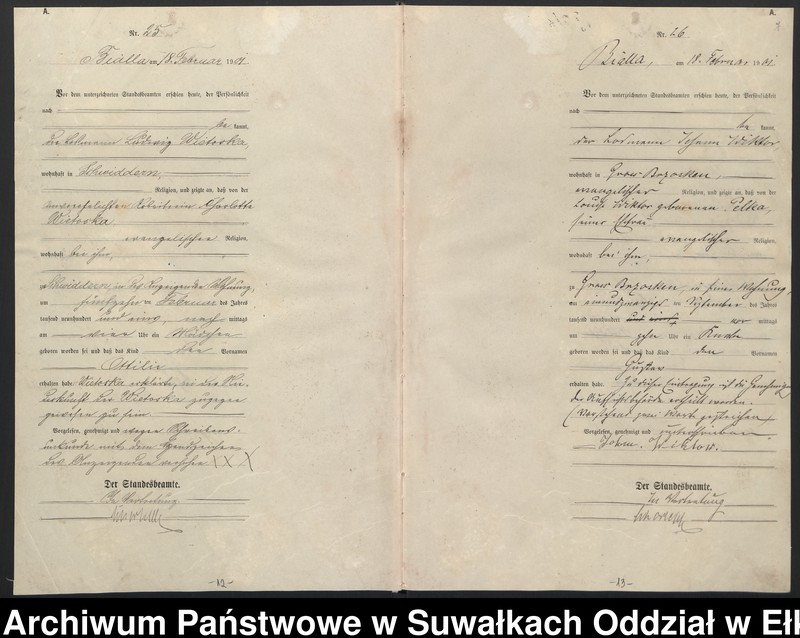 A.
Nr. 25
Bialla am 18. Februar 1901.
Vor dem unterzeichneten Standesbeamten erschien heute, der Persönlichkeit
nach
be kannt,
Ludwig Wietoska,
wohnhaft in Schwiddern,
Religion, und zeigte an, daß von der
unverehelichten Arbeiterin Charlotte
Wietoska
evangelischer Religion,
wohnhaft bei ihm,
zu Schwiddern, in des Anzeigenden Wohnung,
am fünfzehn ten Februar des Jahres
tausend neunhundert und eins, nach mittags
um vier Uhr ein Mädchen
geboren worden sei und daß das Kind den Vornamen
Ottilie
erhalten habe. Wietoska erklärte, bei der Nie-
derkunft der Wietoska zugegen
gewesen zu sein.
Vorgelesen, genehmigt und wegen Schreibens-
unkunde mit dem Handzeichen
des Anzeigenden versehen XXX
Der Standesbeamte.
In Vertretung
-12-
A.
Nr. 26
Bialla, am 18. Februar 1901.
Vor dem unterzeichneten Standesbeamten erschien heute, der Persönlichkeit
nach
be kannt,
der Losmann Johann Wiktor,
wohnhaft in Gross Brzosken,
evangelischer Religion, und zeigte an, daß von der
Louise Wiktor geborenen Pelka,
seiner Ehefrau
evangelischer Religion,
wohnhaft bei ihm,
zu Gross Brzosken, in seiner Wohnung
am einundzwanzigs ten September des Jahres
tausend neunhundert und eins, vor mittags
um zehn Uhr ein Knabe
geboren worden sei und daß das Kind den Vornamen
Gustav
erhalten habe. Zu dieser Eintragung ist die Genehmigung
der Aufsichtsbehörde ertheilt worden.
(Vorstehend zwei Worte gestrichen)
Vorgelesen, genehmigt und unterschrieben
Johann Wiktor.
Der Standesbeamte.
In Vertretung
-13-
Archiwum Państwowe w Suwałkach Oddział w Eł